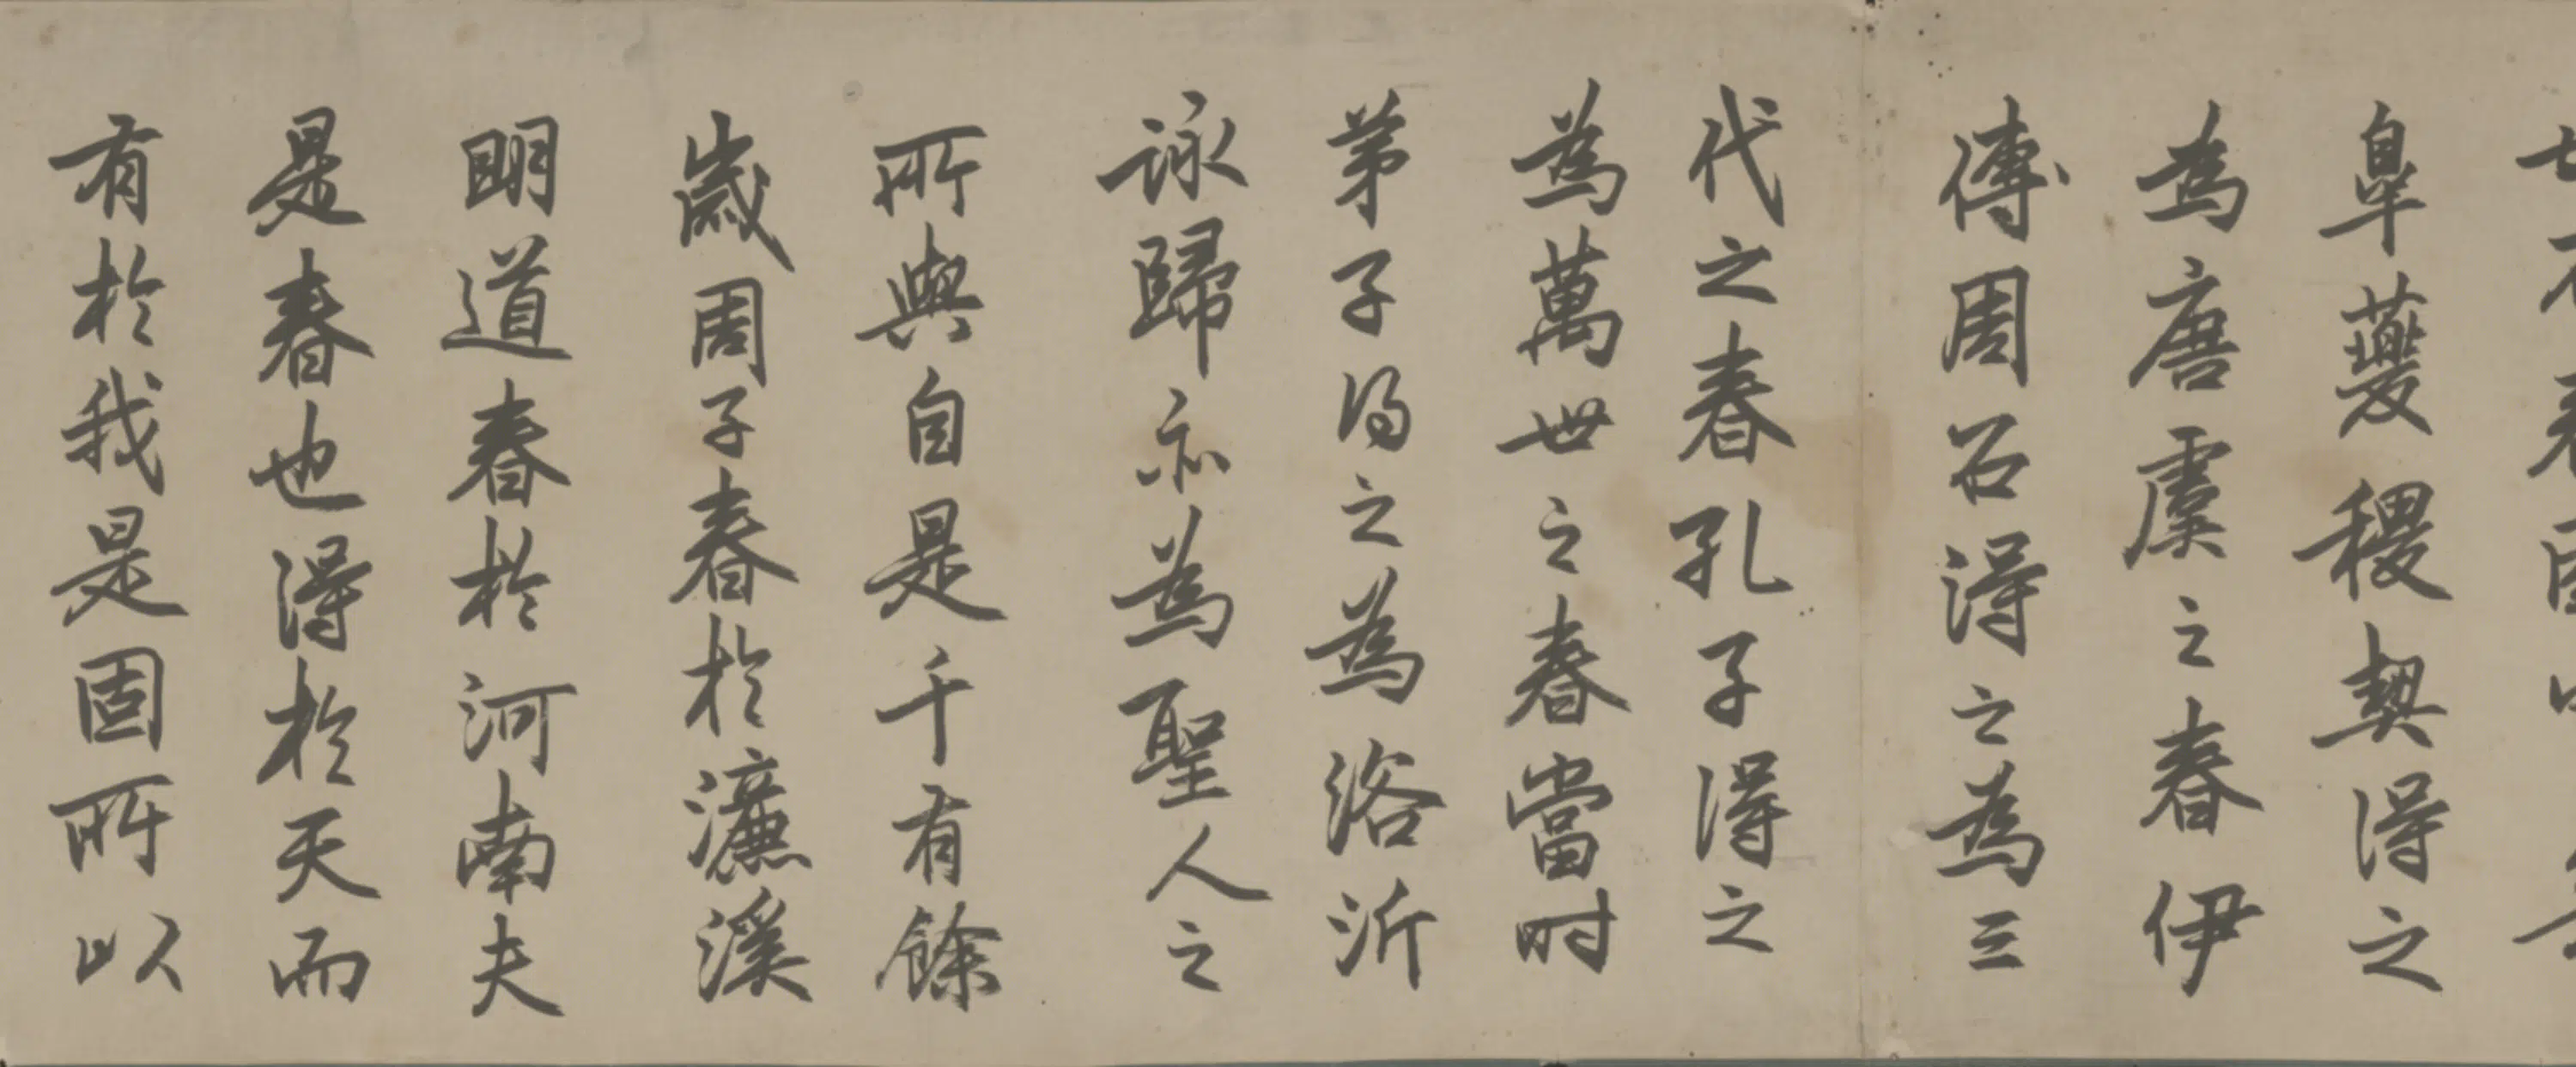 皐夔稷契得之
為唐虞之春伊
傅周召得之為三
代之春孔子得之
為萬世之春當时
弟子得之為浴沂
詠歸亦為聖人之
所與自是千有餘
歲周子春於濂溪
明道春於河南夫
是春也得於天而
有於我是固所以